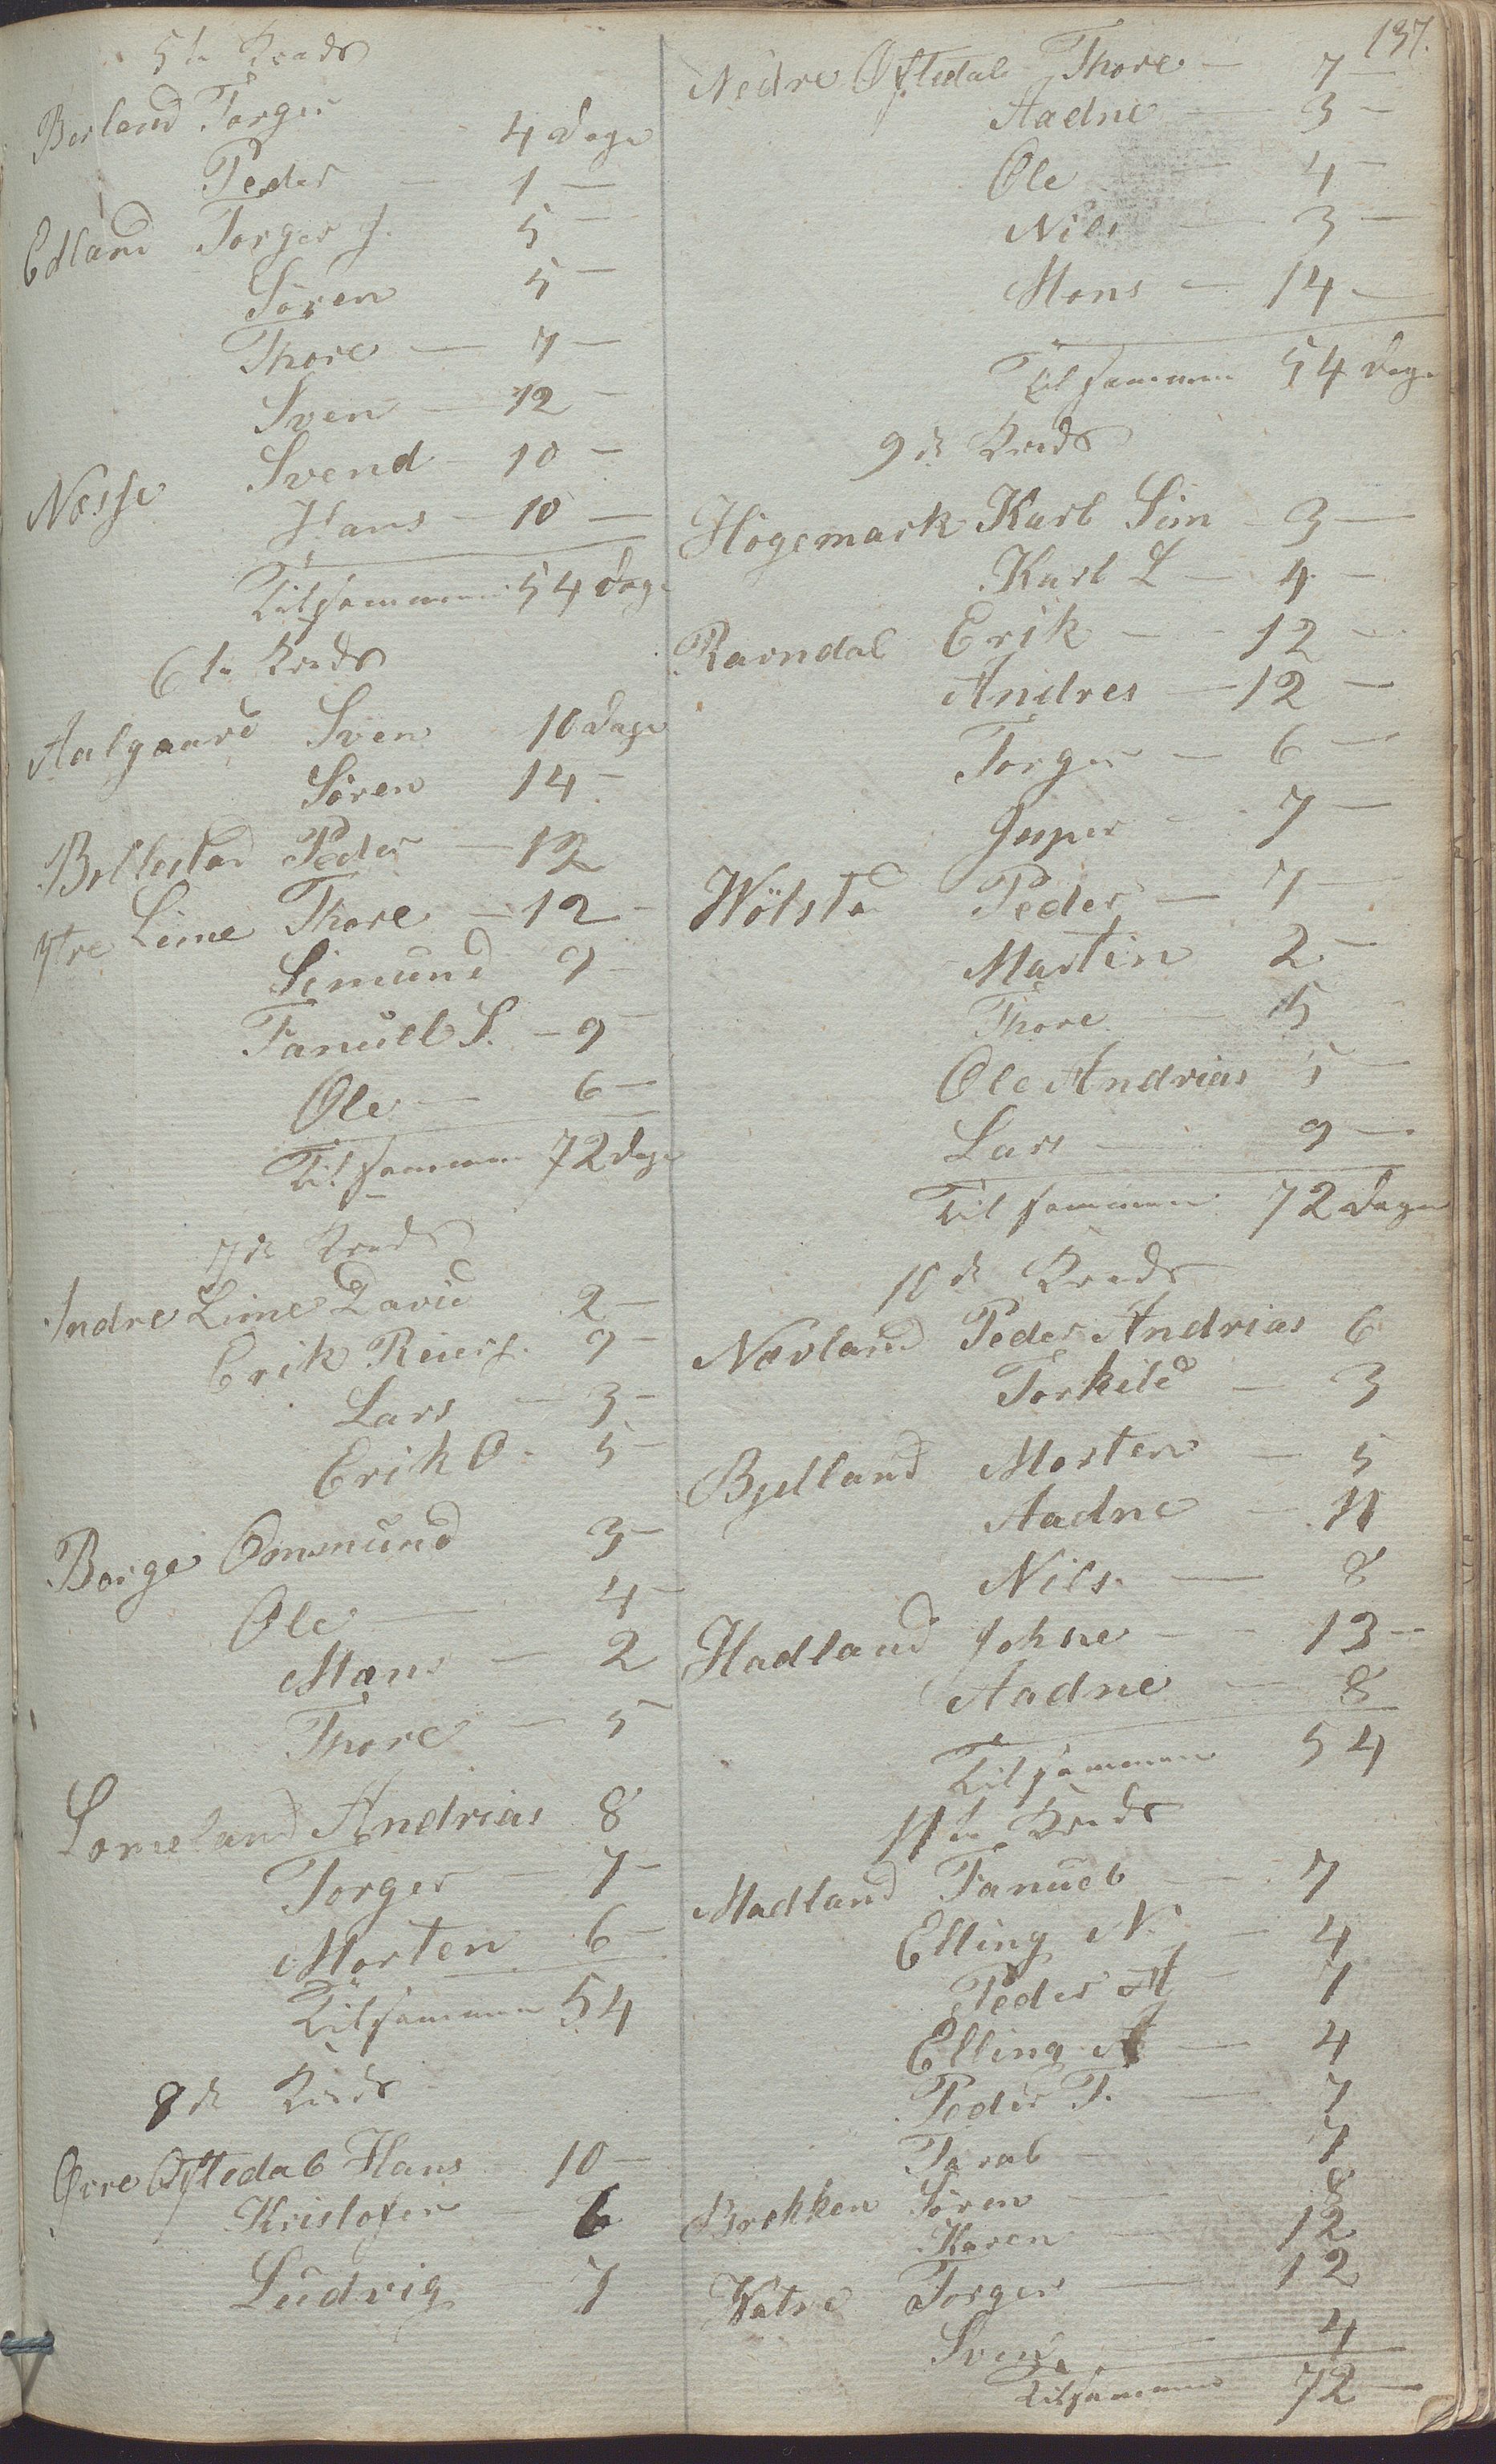 137.
5te Kreds
Berland Torger 4 Dage
Peder — 1 —
Edland Torger J. 5 —
Sören 5 —
Thore — 7 —
Sven — 12 —
Nesse Svend — 10 —
Hans — 10 —
Tilsammen 54 Dage
6te Kreds
Aalgaard Sven 10 Dage
Sören 14 —
Bollestad Peder — 12
Ytre Lime Thore — 12 —
Simund 9 —
Tanüel S. — 9 —
Ole — 6 —
Tilsammen 72 Dage
7de Kreds
Indre Lime David 2 —
Erik Reiers. 9 —
Lars — 3 —
Erik O. 5 —
Borge Ommund 3 —
Ole — 4 —
Mans — 2
Thore — 5
Lomeland Andrias 8
Torger — 7 —
Morten 6 —
Tilsammen 54
8de Kreds
Øvre Oftedal Hans 10 —
Kristofer — 6
Ludvig — 7
Nedre Oftedal Thore — 7 —
Aadne — 3 —
Ole — 4 —
Nils — 3 —
Mons — 14 —
Tilsammen 54 Dage
9de Kreds
Högemark Karl Sim — 3 —
Karl L — 4 —
Ravndal Erik — 12 —
Andres — 12 —
Torger — 6 —
Jesper — 7 —
Wölstad Peder — 7 —
Martin 2 —
Thore — 5
Ole Andrias 5 —
Lars — 9 —
Tilsammen 72 Dage
10de Kreds
Nevland Peder Andrias 6
Torkild — 3
Bjelland Morten — 5
Aadne — 11
Nils — 8
Hadland Johne — 13 —
Aadne — 8
Tilsammen 54
11te Kreds
Madland Tanüel — 7
Elling N. — 4
Peder A — 7
Elling A — 4
Peder T. — 7
Taral — 7
Brekken Sören — 8
Karen — 12
Watne Torger — 12
Sven — 4
Tilsammen 72 —